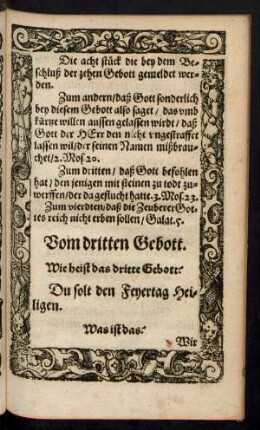 Die acht stück die bey dem Be-
schluß der zehen Gebott gemeldet wer-
den.
Zum andern/daß Gott sonderlich
bey diesem Gebott also saget / das vmb
kürtze willen aussen gelassen wirdt / daß
Gott der HErr den nicht vngestraffet
lassen wil/der seinen Namen mißbrau-
chet/2. Mos 20.
Zum dritten / daß Gott befohlen
hat / den jenigen mit steinen zu todt zu-
werffen/der da geflucht hatte. 3. Mos. 23.
Zum vierdten/daß die Zeuberer Got-
tes reich nicht erben sollen / Galat. 5.
Vom dritten Gebott.
Wie heist das dritte Gebott?
Du solt den Feyertag Hei-
ligen.
Was ist das?
Wir